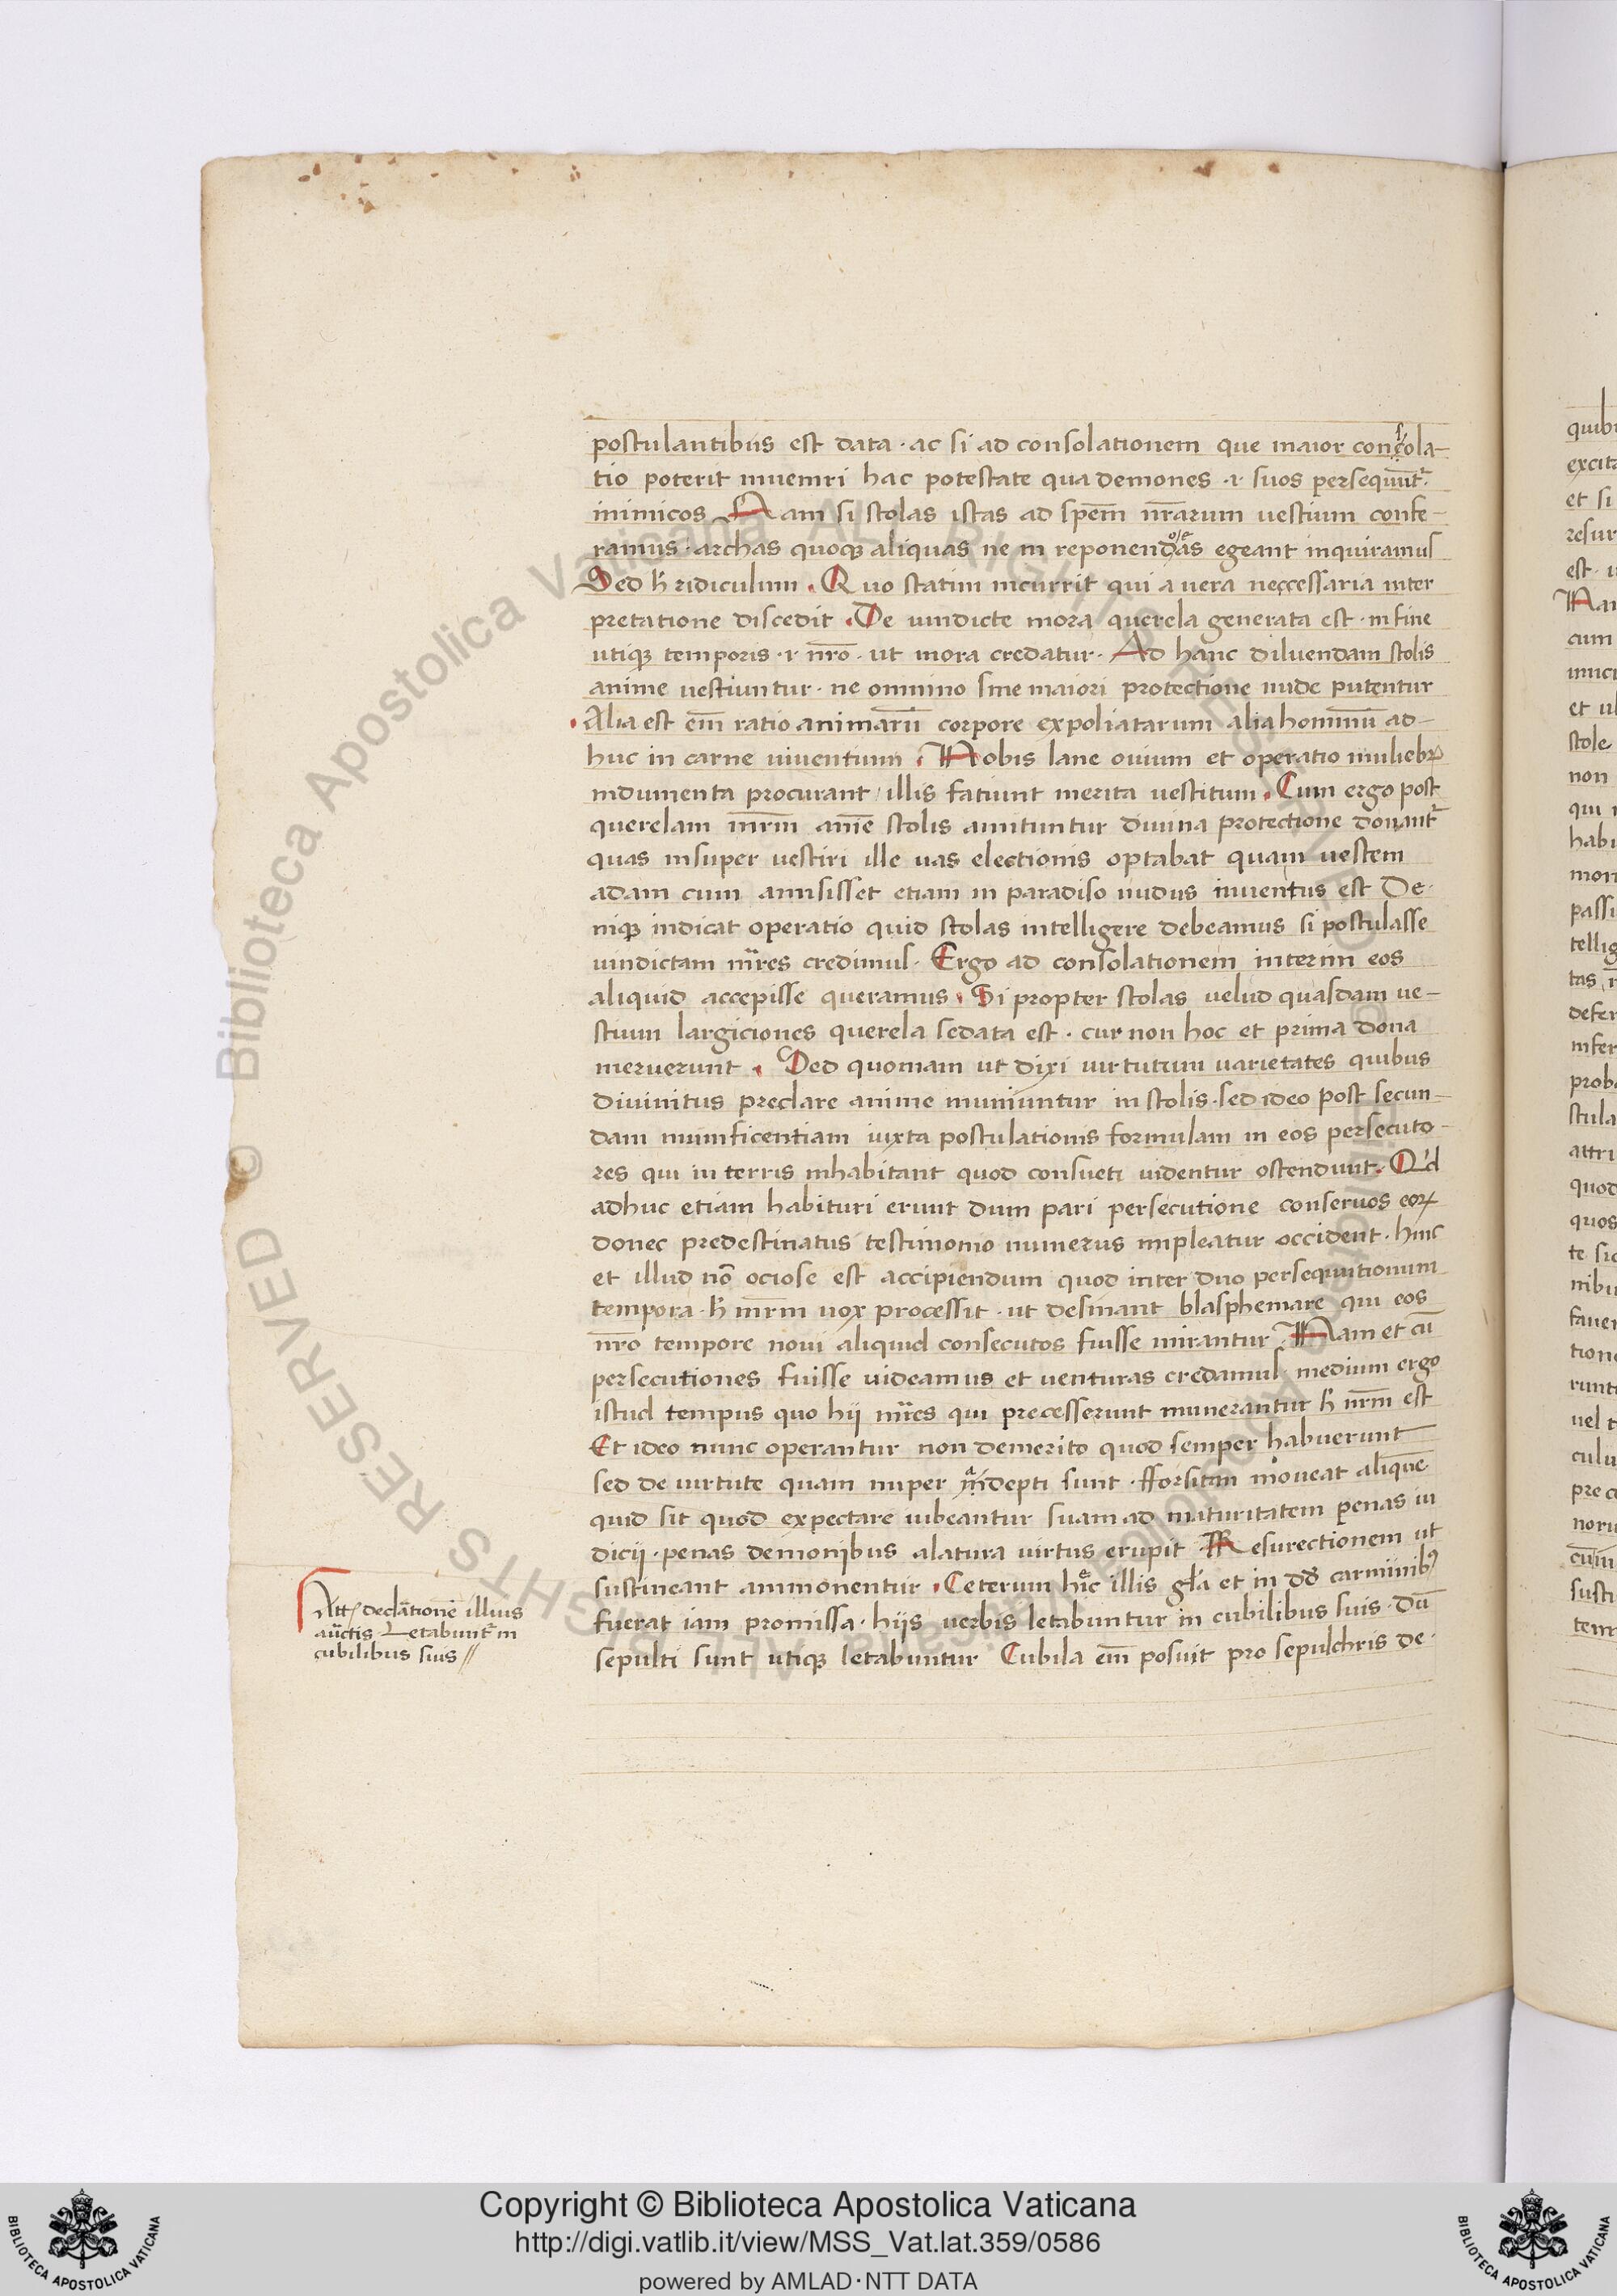 postulantibus est data · ac si ad consolationem que maior consola-
tio poterit inveniri hac potestate qua demones · i · suos persequunt᷑
inimicos Nam si stolas istas ad spem̄ nr̄arum vestium confe-
ramus · archas quoqꝫ aliquas ne in reponendas egeant inquiramus
Sed h̄ ridiculum . Quo statim incurrit qui a vera neccessaria inter
pretatione discedit . De vindicte mora querela generata est · in fine
utiqꝫ temporis · i · nr̄o · ut mora credatur · Ad hanc diluendam stolis
anime vestiuntur · ne omnino sine maiori protectione nude putentur
Alia est em̄ ratio animarū corpore expoliatarum alia hominū ad-
huc in carne viventium . Nobis lane ovium et operatio muliebr
indumenta procurant / illis fatiunt merita vestitum . Cum ergo post
querelam mr̄m anīe stolis amituntur divina protectione donant᷑
quas insuper vestiri ille vas electionis optabat quam vestem
adam cum amisisset etiam in paradiso nudus inventus est De-
niqꝫ indicat operatio quid stolas intelligere debeamus si postulasse
vindictam mr̄es credimus · Ergo ad consolationem interim eos
aliquid accepisse queramus . Si propter stolas velud quasdam ve-
stium largiciones querela sedata est · cur non hoc et prima dona
meruerunt . Sed quoniam ut dixi virtutum varietates quibus
divinitus preclare anime muniuntur in stolis · sed ideo post secun-
dam munificentiam iuxta postulationis formulam in eos persecuto-
res qui in terris inhabitant quod consueti videntur ostendunt . Qd
adhuc etiam habituri erunt dum pari persecutione conservos eoꝝ
donec predestinatus testimonio numerus impleatur occident · hinc
et illud nō ociose est accipiendum quod inter duo persequutionum
tempora · h̄ mr̄m vox processit · ut desinant blasphemare qui eos
nr̄o tempore novi aliquid consecutos fuisse mirantur . Nam et cū
persecutiones fuisse videamus et venturas credamus medium ergo
istud tempus quo hij mr̄es qui precesserunt munerantur h̄ nr̄m est
Et ideo nunc operantur non demerito quod semper habuerunt
sed de virtute quam nuper adepti sunt · fforsitan moveat aliquē
quid sit quod expectare iubeantur suam ad maturitatem penas iu
dicij · penas demonibus alatura virtus erupit . Resurectionem ut
sustineant ammonentur . Ceterum hec illis gl̄a et in dd carminibꝰ
fuerat iam promissa · hijs verbis letabuntur in cubilibus suis · Dū
sepulti sunt utiqꝫ letabuntur Cubila em̄ posuit pro sepulchris de-
Att declātionē illius
auctis Letabunt᷑ in
cubilibus suis //
quibu
excita
et si
resur
est ·
Nam
cum
et ul
stole
non
qui
habu
mon
passi
tellig
tas
defer
infer
proba
stula
attri
quod
quos
te sic
nibu
faver
tione
runt
vel t
culu
pre c
noru
cum
susti
tem
© Biblioteca Apostolica Vaticana ALL RIGHTS RESERVED © Biblioteca Apostolica Vaticana ALL RIGHTS RESERVED
BIBLIOTECA APOSTOLICA VATICANA
Copyright © Biblioteca Apostolica Vaticana
http://digi.vatlib.it/view/MSS_Vat.lat.359/0586
powered by AMLAD·NTT DATA
BIBLIOTECA APOSTOLICA VATICANA